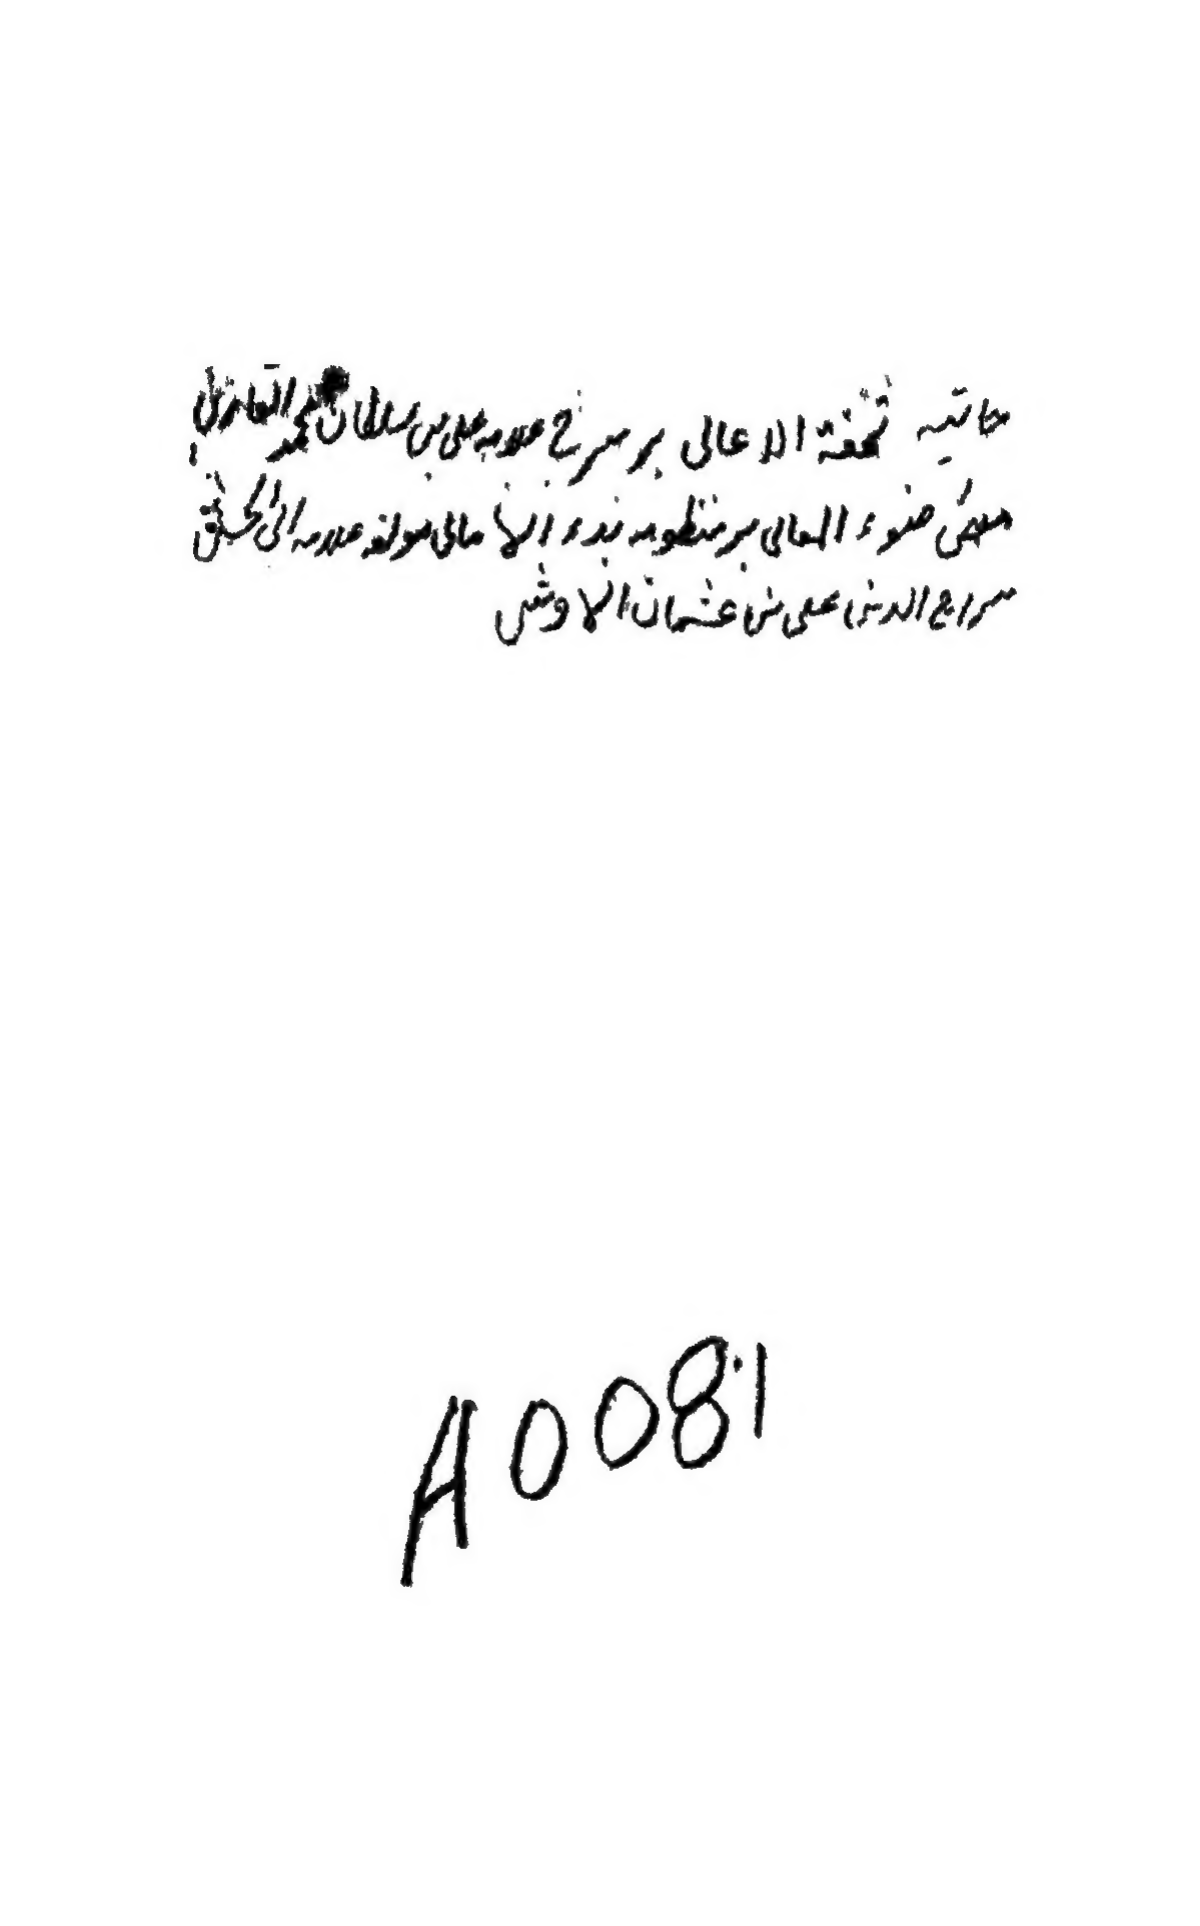 حاشیه تحفة الاعالی بر شرح علامه علی بن سلطان محمد القاری
ضوء المعالی بر منظومه بدء الامالی مولفه علامه ابی الحسن
سراج الدین علی بن عثمان الاوشی
A008.1